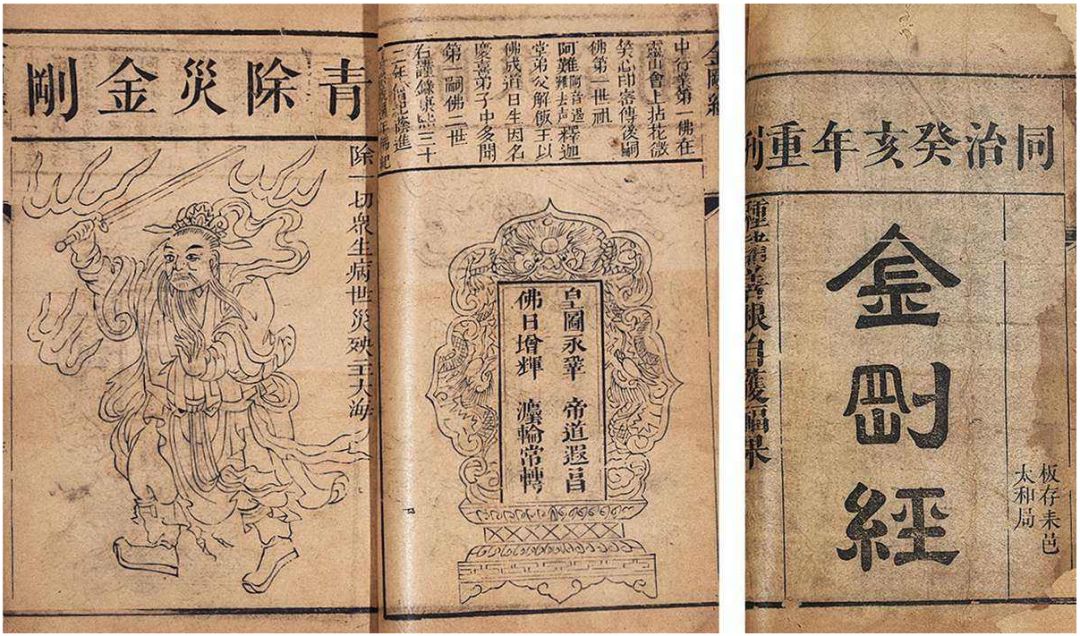 中行業第一佛在
靈山會上拈花微
笑心印密傳後嗣
佛第一世祖
阿難
釋迦
堂弟父斛飯王以
佛成道日生因名
慶喜弟子中多聞
第一嗣佛二世
右謹錄康熙三十
皇圖永鞏 帝道遐昌
佛日增輝 灋輪常轉
青除災金剛
除一切衆生病世災殃主大海
同治癸亥年重刊
板存耒邑
太和局
金剛經
種諸善根自獲福果